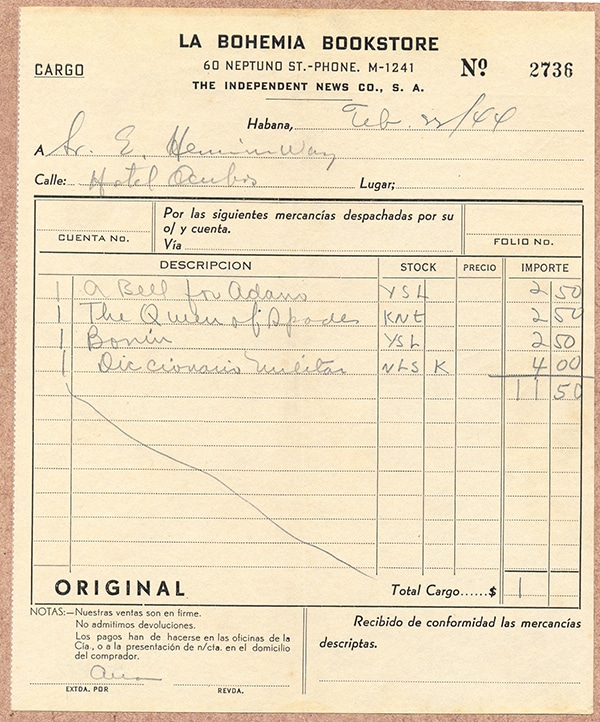 LA BOHEMIA BOOKSTORE
CARGO
60 NEPTUNO ST.-PHONE. M-1241
Nº 2736
THE INDEPENDENT NEWS CO., S. A.
Habana, Feb. 22/44
A Sr. E. Heminway
Calle: Hotel
Lugar;
Por las siguientes mercancías despachadas por su
o/ y cuenta.
CUENTA No.
Vía
FOLIO No.
DESCRIPCION STOCK PRECIO IMPORTE
1 A Bell for Adano YSL 2 50
1 The Queen of Spades KNE 2 50
1 YSL 2 50
1 Diccionario Militar NLS K 4 00
11 50
ORIGINAL
Total Cargo......$ 1
NOTAS:—Nuestras ventas son en firme.
No admitimos devoluciones.
Los pagos han de hacerse en las oficinas de la
Cía., o a la presentación de n/cta. en el domicilio
del comprador.
Recibido de conformidad las mercancías
descriptas.
EXTDA. POR REVDA.